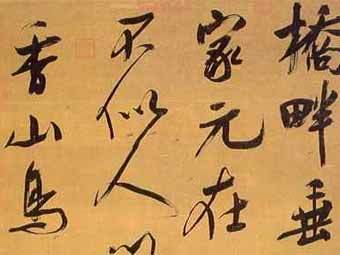 橋畔垂
家元在
不似人
香山鳥